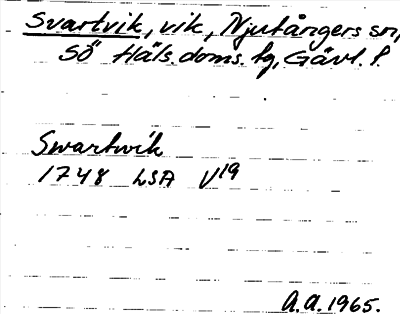 Svartvik, vik, Njutångers sn,
Sö Häls. doms. fg, Gävl. l.
Swartwik
1748 LSA V19
A.A. 1965.